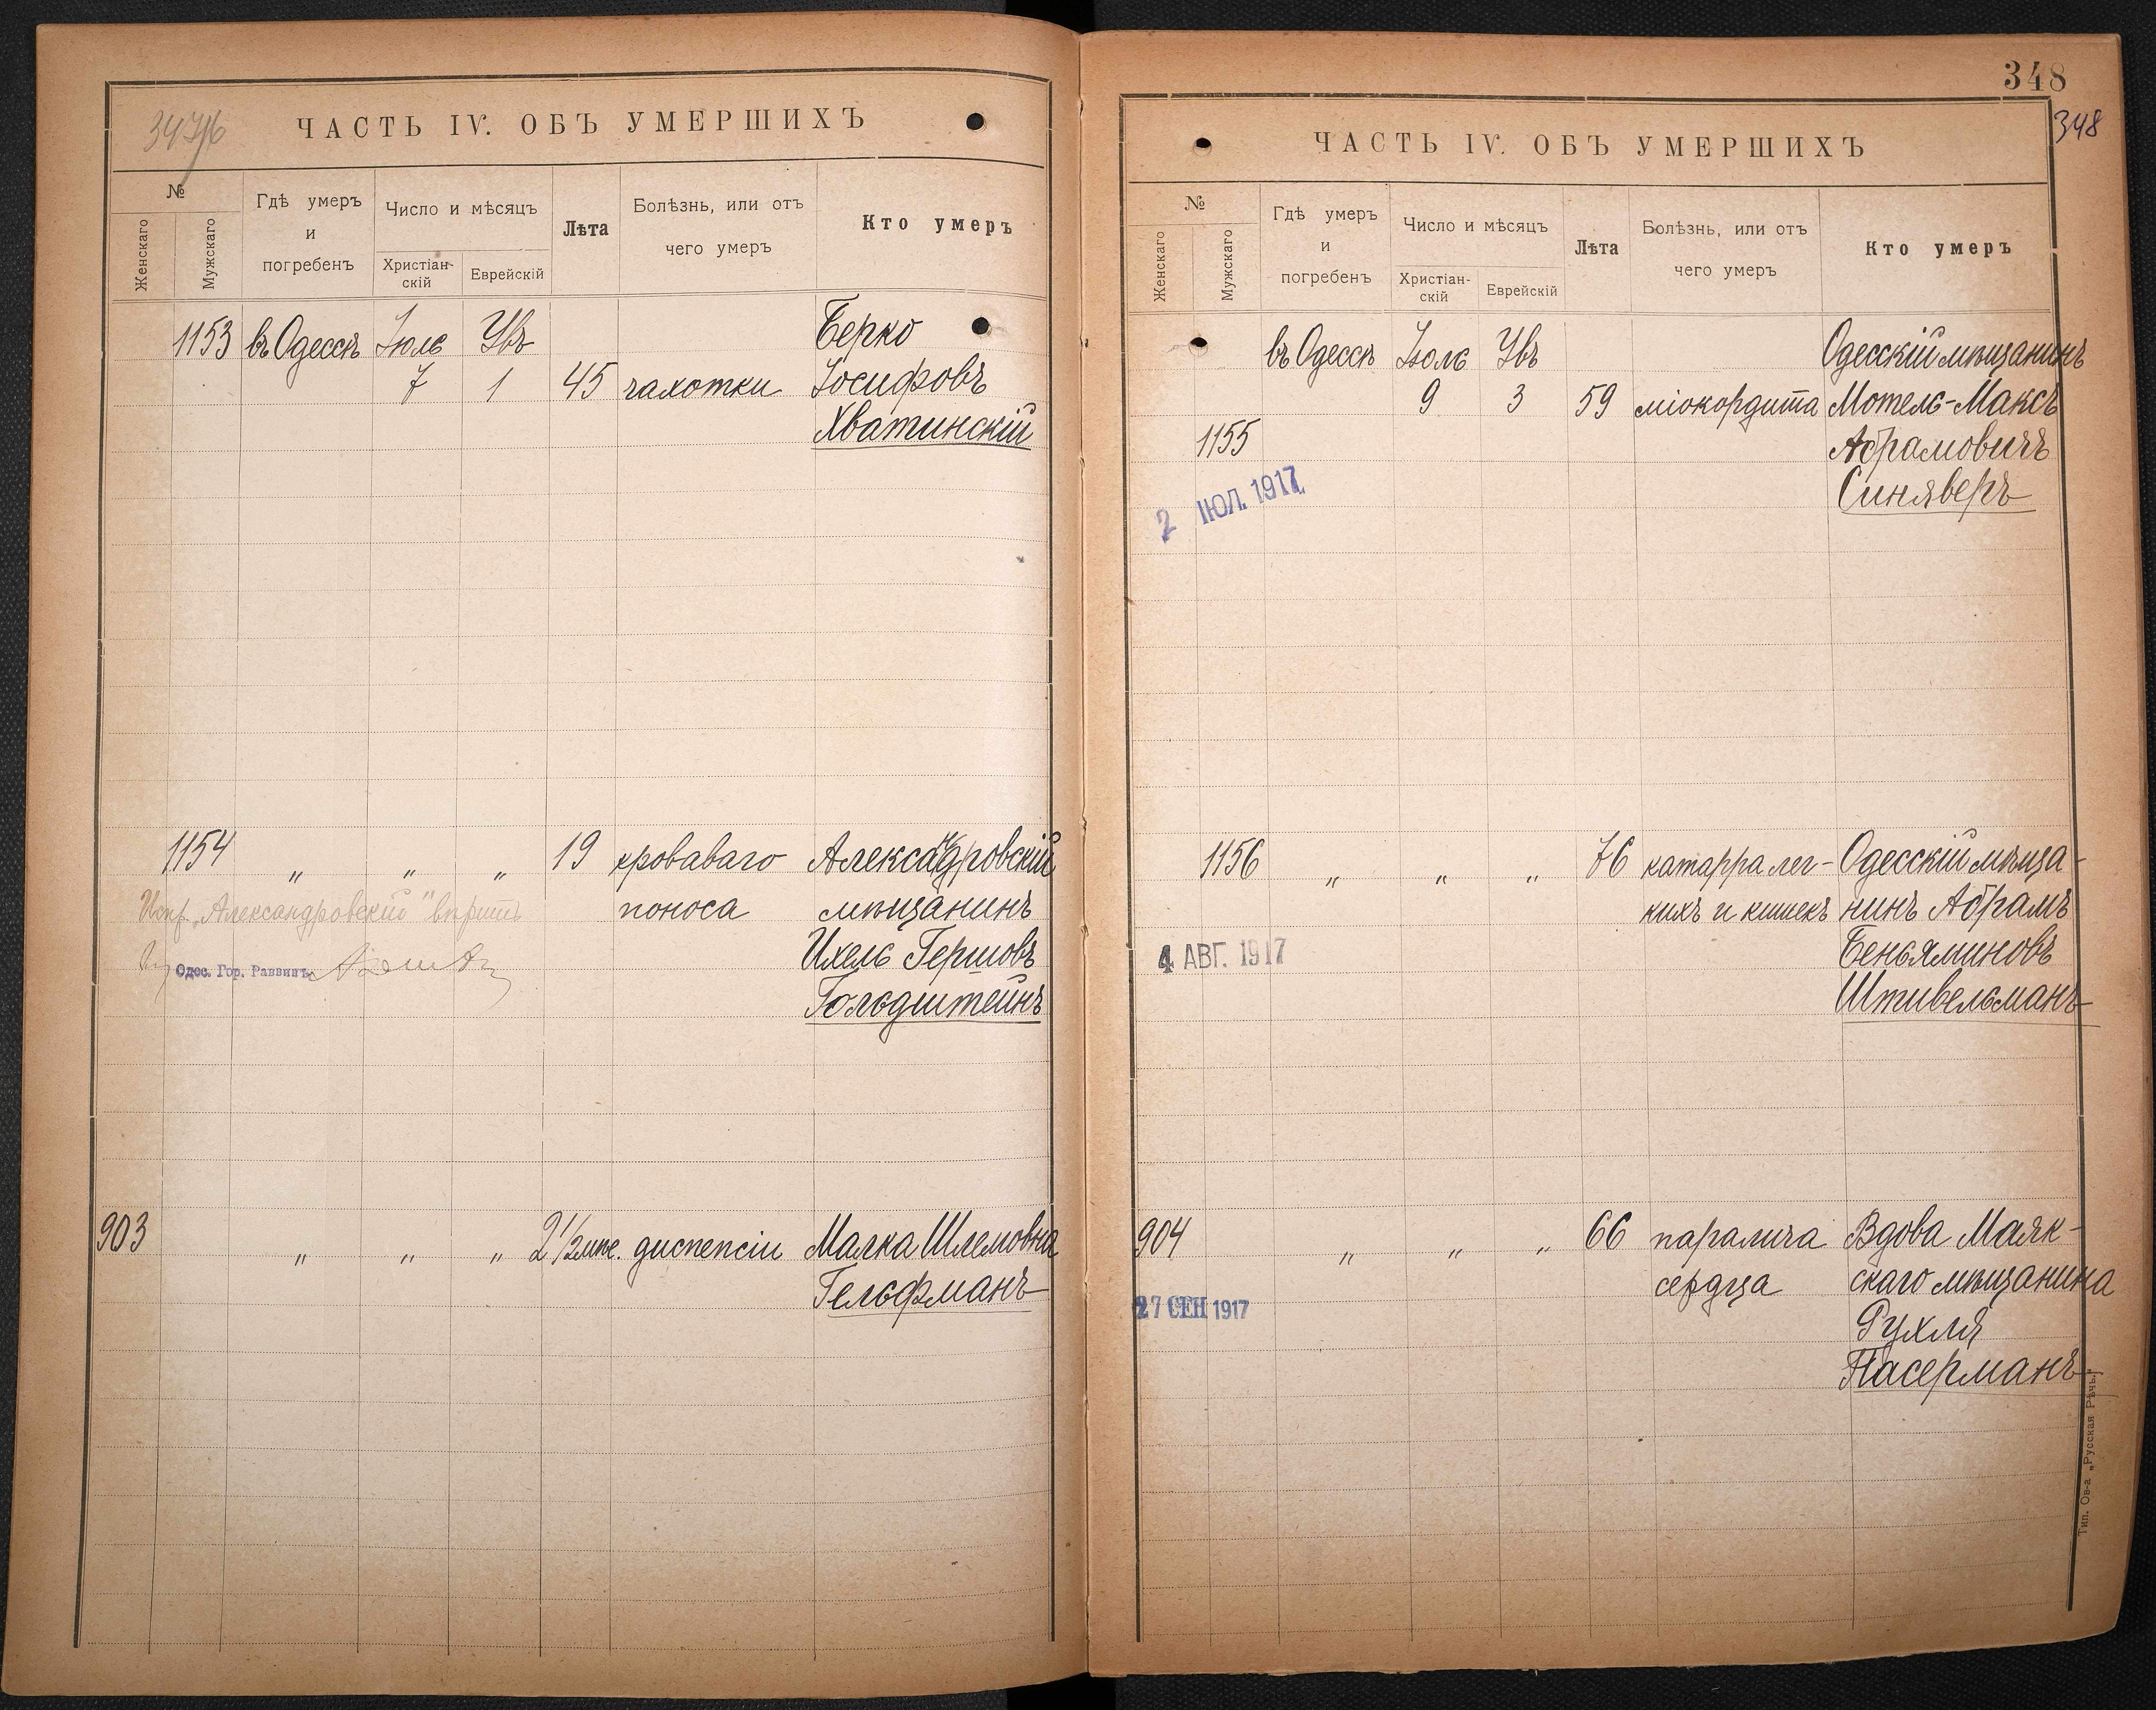 347/6
ЧАСТЬ IV. ОБЪ УМЕРШИХЪ
№
Женскаго
Мужскаго
Гдѣ умеръ
и
погребенъ
Число и мѣсяцъ
Христіан-
скій
Еврейскій
Лѣта
Болѣзнь, или отъ
чего умеръ
Кто умеръ
1153 въ Одессѣ Іюль Увъ Берко
7 1 45 чахотки Іосифовъ
Хватинскій
1154 „ „ „ 19 кроваваго Александровскій
Испр. „Александровскій" вѣрить поноса мѣщанинъ
Одес. Гор. Раввинъ Ихель Гершовъ
Гольдштейнъ
903 „ „ „ 2 1/2 мѣс. диспепсіи Малка Шлемовна
Гельфманъ
348
348
ЧАСТЬ IV. ОБЪ УМЕРШИХЪ
№
Женскаго
Мужскаго
Гдѣ умеръ
и
погребенъ
Число и мѣсяцъ
Христіан-
скій
Еврейскій
Лѣта
Болѣзнь, или отъ
чего умеръ
Кто умеръ
въ Одессѣ Іюль Увъ Одесскій мѣщанинъ
9 3 59 міокордита Мотель-Максъ
1155 Абрамовичъ
2 ІЮЛ. 1917 Синяверъ
1156 „ „ „ 76 катарра лег- Одесскій мѣща-
кихъ и кишекъ нинъ Абрамъ
4 АВГ. 1917 Беньяминовъ
Штивельманъ
904 „ „ „ 66 паралича Вдова Маяк-
27 СЕН 1917 сердца скаго мѣщанина
Рухля
Пасерманъ
Тип. Ов-а „Русская Рѣчь"